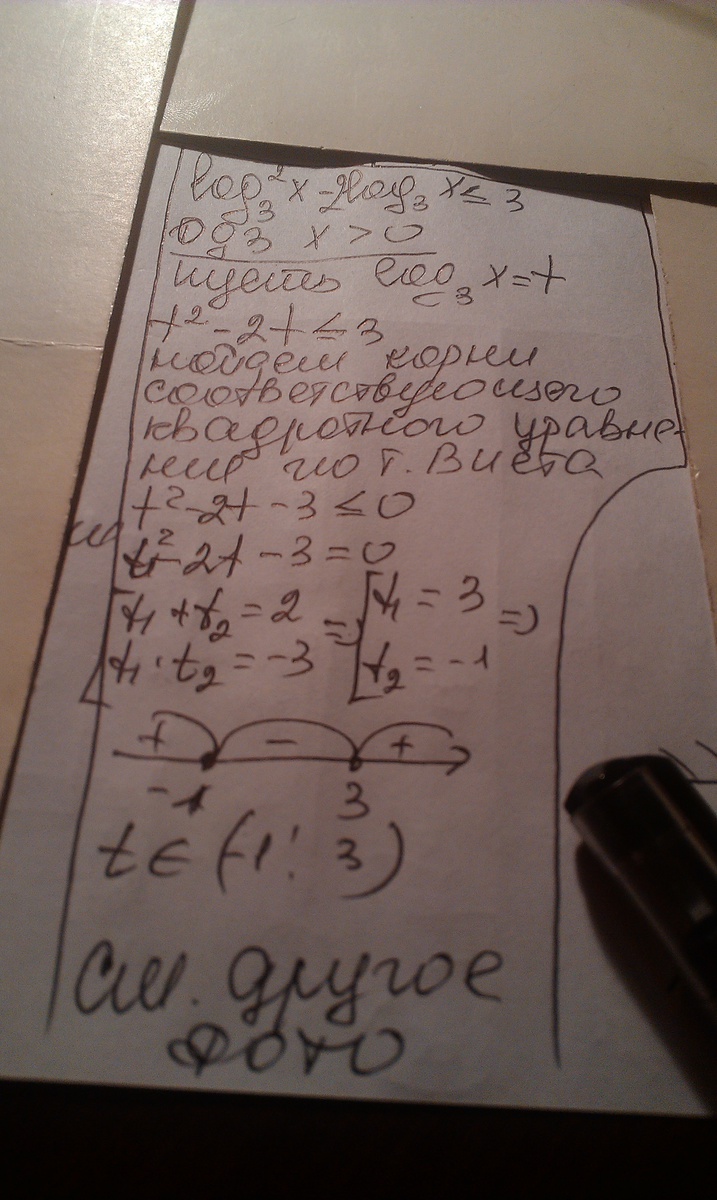 log₃²x-2log₃x≤3
ОДЗ x>0
пусть log₃x=t
t²-2t≤3
найдем корни
соответствующего
квадратного уравне-
ния по т. Виета
t²-2t-3≤0
t²-2t-3=0
t₁+t₂=2 => t₁=3 =>
t₁·t₂=-3 t₂=-1
+ - +
-1 3
t∈(-1; 3)
см. другое
фото